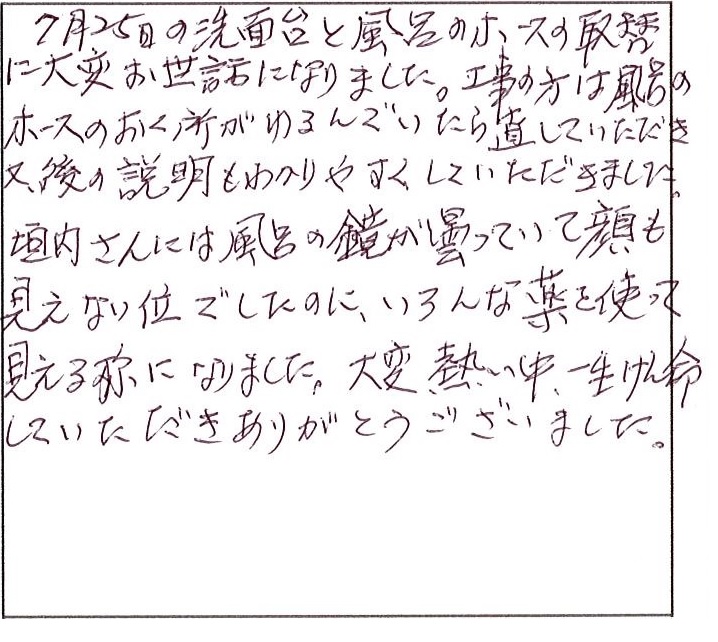 7月25日の洗面台と風呂のホースの取替
に大変お世話になりました。工事の方は風呂の
ホースのおく所がゆるんでいたら直していただき
又、後の説明もわかりやすくしていただきました。
垣内さんには風呂の鏡が曇っていて顔も
見えない位でしたのに、いろんな薬を使って
見える様になりました。大変熱い中、一生けん命
していただきありがとうございました。